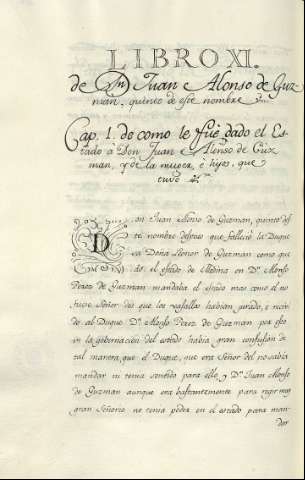 LIBRO XI.
de Dn Juan Alonso de Guz
man, quinto de este nombre
Cap. 1. de como le fue dado el Es
tado a Don Juan Alonso de Guz
man, y de la muger, è hijos, que
tuvo
Don Juan Alonso de Guzman, quinto des
te nombre despues que fallecio la Duque
sa Doña Leonor de Guzman como que
do el estado de Medina en Dn. Alonso
Perez de Guzman mandaba el estado mas como el no
fuese Señor de los vasallos habian jurado, è
do al Duque Dn. Alonso Perez de Guzman por eso
en la gobernacion del estado habia gran confusion de
tal manera, que el Duque, que era Señor del no sabia
mandar ni tenia sentido para ello y Dn. Juan Alonso
de Guzman aunque era bastantemente para regir muy
gran Señorio no tenia poder en el estado para man-
dar